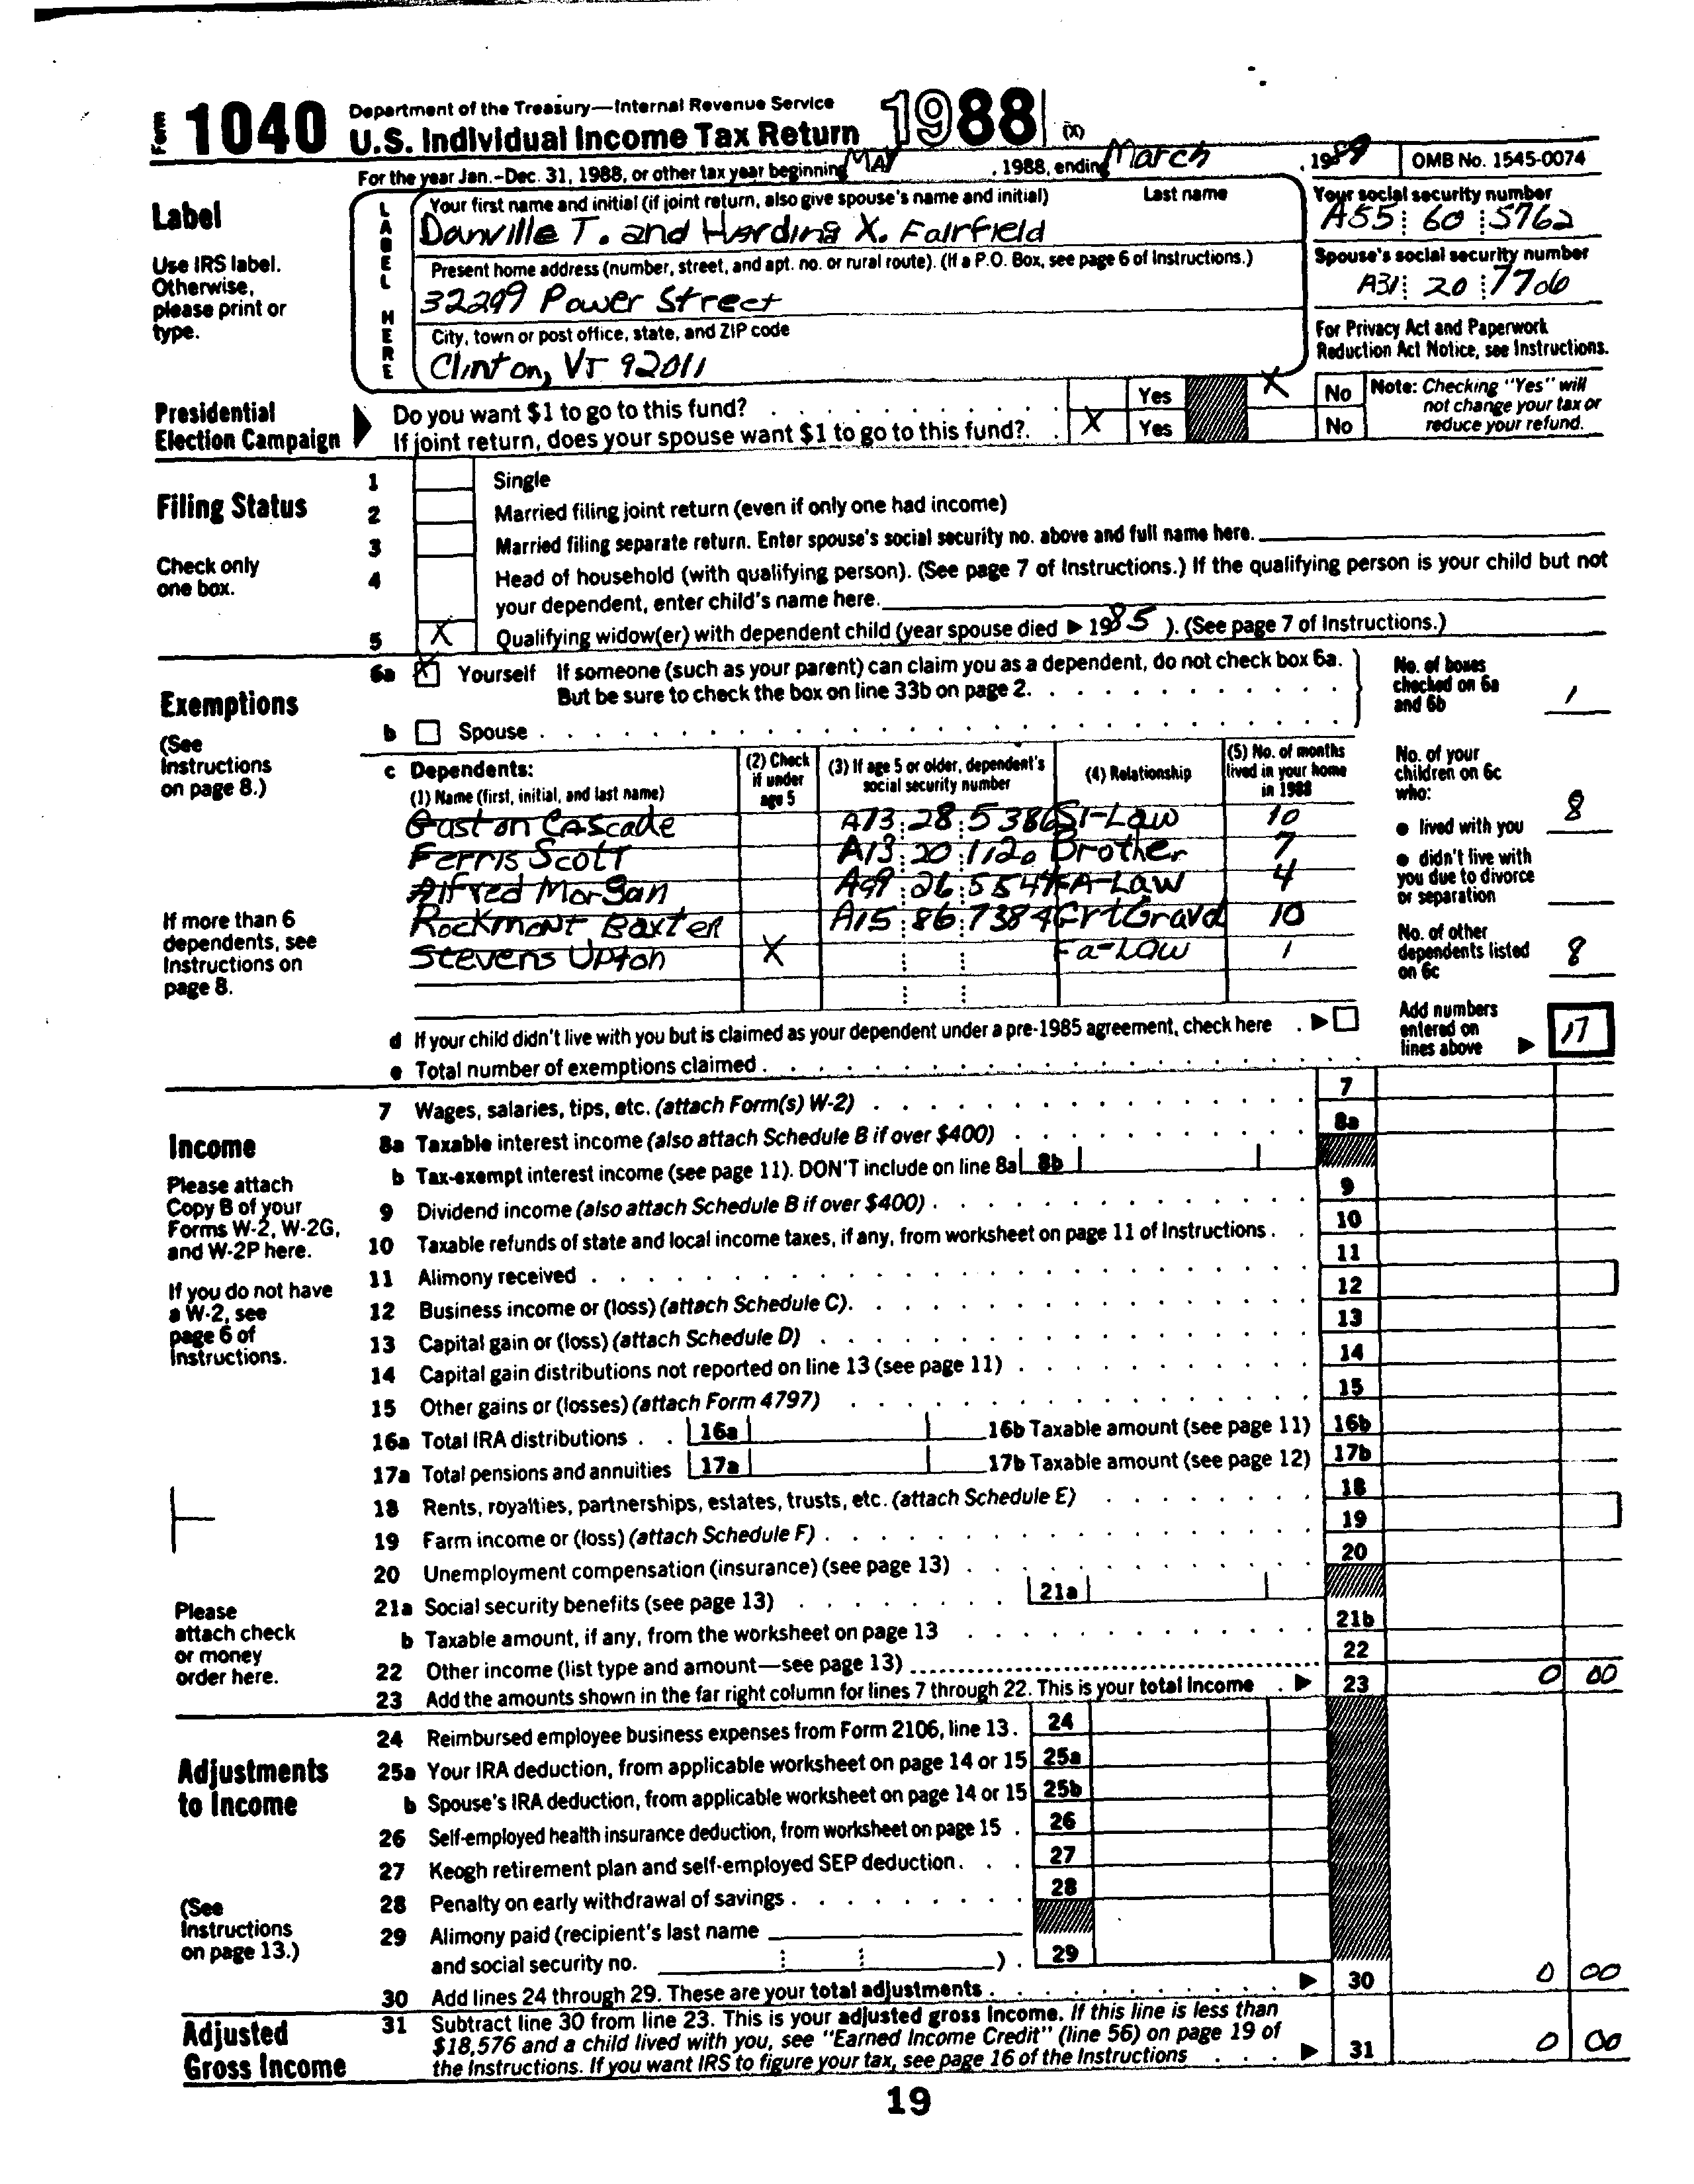 Form 1040 Department of the Treasury—Internal Revenue Service
U.S. Individual Income Tax Return 1988 (X)
For the year Jan.-Dec. 31, 1988, or other tax year beginning MAY , 1988, ending March , 1989 OMB No. 1545-0074
Label
Use IRS label.
Otherwise,
please print or
type.
LABEL HERE
Your first name and initial (if joint return, also give spouse's name and initial) Last name
Danville T. and Harding X. Fairfield
Your social security number
A55 60 5762
Present home address (number, street, and apt. no. or rural route). (If a P.O. Box, see page 6 of Instructions.)
32299 Power Street
Spouse's social security number
A31 20 7706
City, town or post office, state, and ZIP code
Clinton, VT 92011
For Privacy Act and Paperwork
Reduction Act Notice, see Instructions.
Presidential
Election Campaign
Do you want $1 to go to this fund? Yes X No
If joint return, does your spouse want $1 to go to this fund? X Yes No
Note: Checking "Yes" will
not change your tax or
reduce your refund.
Filing Status
Check only
one box.
1 Single
2 Married filing joint return (even if only one had income)
3 Married filing separate return. Enter spouse's social security no. above and full name here.
4 Head of household (with qualifying person). (See page 7 of Instructions.) If the qualifying person is your child but not
your dependent, enter child's name here.
5 X Qualifying widow(er) with dependent child (year spouse died ▶ 1985 ). (See page 7 of Instructions.)
Exemptions
(See
Instructions
on page 8.)
6a X Yourself If someone (such as your parent) can claim you as a dependent, do not check box 6a.
But be sure to check the box on line 33b on page 2.
b Spouse
No. of boxes
checked on 6a
and 6b 1
c Dependents:
(1) Name (first, initial, and last name)
(2) Check
if under
age 5
(3) If age 5 or older, dependent's
social security number
(4) Relationship
(5) No. of months
lived in your home
in 1988
Gaston Cascade A73 28 5386 SI-Law 10
Ferris Scott A13 20 1120 Brother 7
Alfred Morgan A99 26 5547 FA-Law 4
Rockmont Baxter A15 86 7384 10
Stevens Upton X Fa-Law 1
If more than 6
dependents, see
Instructions on
page 8.
No. of your
children on 6c
who:
● lived with you 8
● didn't live with
you due to divorce
or separation
No. of other
dependents listed
on 6c 8
d If your child didn't live with you but is claimed as your dependent under a pre-1985 agreement, check here ▶
e Total number of exemptions claimed
Add numbers
entered on
lines above ▶ 17
Income
Please attach
Copy B of your
Forms W-2, W-2G,
and W-2P here.
If you do not have
a W-2, see
page 6 of
Instructions.
Please
attach check
or money
order here.
7 Wages, salaries, tips, etc. (attach Form(s) W-2) 7
8a Taxable interest income (also attach Schedule B if over $400) 8a
b Tax-exempt interest income (see page 11). DON'T include on line 8a 8b
9 Dividend income (also attach Schedule B if over $400) 9
10 Taxable refunds of state and local income taxes, if any, from worksheet on page 11 of Instructions 10
11 Alimony received 11
12 Business income or (loss) (attach Schedule C) 12
13 Capital gain or (loss) (attach Schedule D) 13
14 Capital gain distributions not reported on line 13 (see page 11) 14
15 Other gains or (losses) (attach Form 4797) 15
16a Total IRA distributions 16a 16b Taxable amount (see page 11) 16b
17a Total pensions and annuities 17a 17b Taxable amount (see page 12) 17b
18 Rents, royalties, partnerships, estates, trusts, etc. (attach Schedule E) 18
19 Farm income or (loss) (attach Schedule F) 19
20 Unemployment compensation (insurance) (see page 13) 20
21a Social security benefits (see page 13) 21a
b Taxable amount, if any, from the worksheet on page 13 21b
22 Other income (list type and amount—see page 13) 22
23 Add the amounts shown in the far right column for lines 7 through 22. This is your total income ▶ 23 0 00
Adjustments
to Income
(See
Instructions
on page 13.)
24 Reimbursed employee business expenses from Form 2106, line 13. 24
25a Your IRA deduction, from applicable worksheet on page 14 or 15 25a
b Spouse's IRA deduction, from applicable worksheet on page 14 or 15 25b
26 Self-employed health insurance deduction, from worksheet on page 15 26
27 Keogh retirement plan and self-employed SEP deduction 27
28 Penalty on early withdrawal of savings 28
29 Alimony paid (recipient's last name
and social security no. ) 29
30 Add lines 24 through 29. These are your total adjustments ▶ 30 0 00
Adjusted
Gross Income
31 Subtract line 30 from line 23. This is your adjusted gross income. If this line is less than
$18,576 and a child lived with you, see "Earned Income Credit" (line 56) on page 19 of
the Instructions. If you want IRS to figure your tax, see page 16 of the Instructions ▶ 31 0 00
19